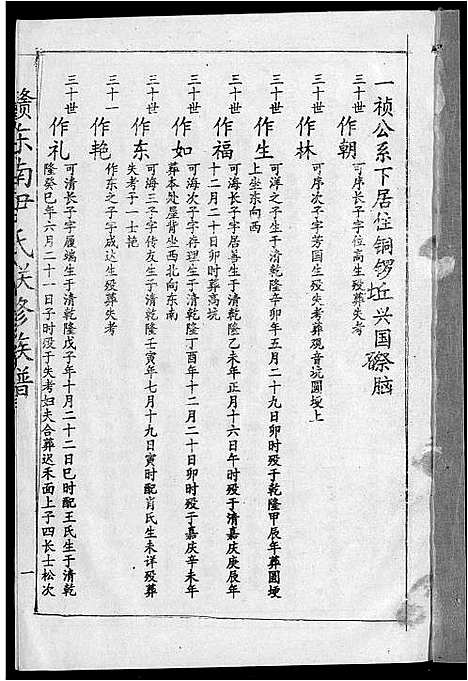 一祯公系下居住铜锣坵兴国磜脑
三十世 作朝 可序长子字位高生殁葬失考
三十世 作林 可序次子字芳国生殁失考葬观音坑圆埂上
三十世 作生 可洋之子生于清乾隆辛卯年五月二十九日卯时殁于乾隆甲辰年葬圆埂
上坐东向西
三十世 作福 可海长子字居善生于清乾隆乙未年正月十六日午时殁于清嘉庆庚辰年
十二月二十日卯时葬高坑
三十世 作如 可海次子字存理生于清乾隆丁酉年十二月二十日卯时殁于嘉庆辛未年
葬本处屋背坐西北向东南
三十世 作东 可海三子字传友生于清乾隆壬寅年七月十九日寅时配肖氏生未详殁葬
失考子一士艳
三十一 作艳 作东之子字成达生殁葬失考
三十世 作礼 可清长子字履端生于清乾隆戊子年十月二十二日巳时配王氏生于清乾
隆癸巳年六月二十一日子时没于失考妇夫合葬迟禾面上子四长士松次
赣东南尹氏联修族谱
一